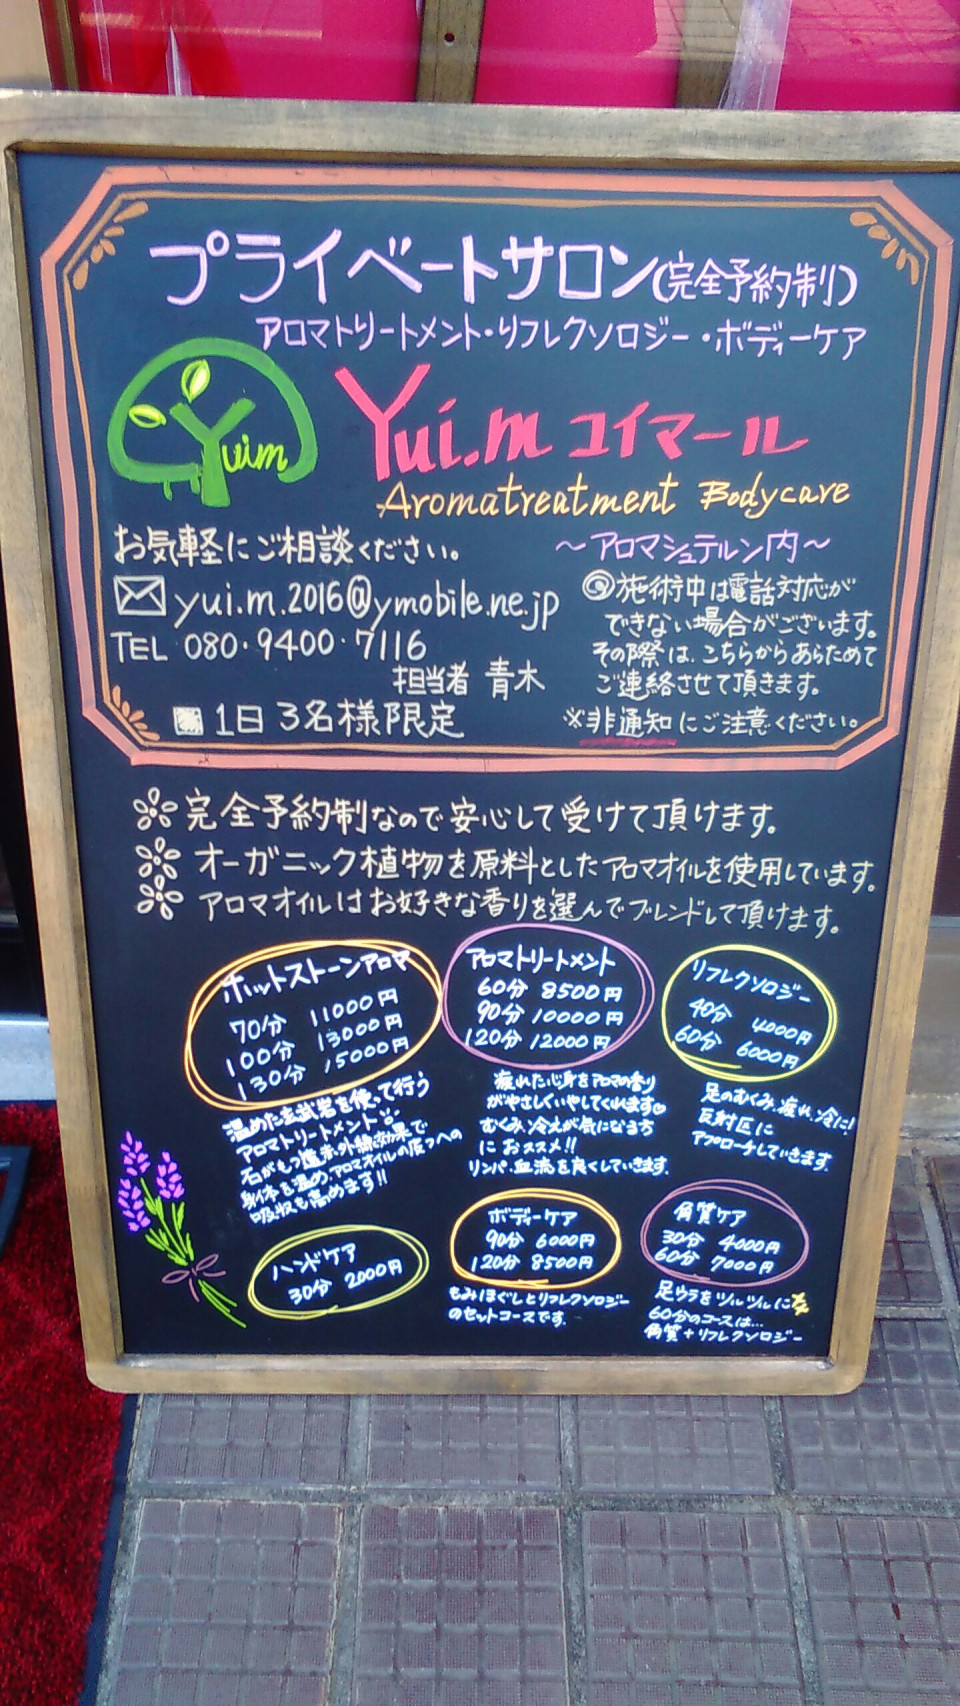 プライベートサロン(完全予約制)
アロマトリートメント・リフレクソロジー・ボディーケア
Yuim
Yui.m ユイマール
Aromatreatment Bodycare
お気軽にご相談ください。
yui.m.2016@ymobile.ne.jp
TEL 080・9400・7116
担当者 青木
1日3名様限定
〜アロマシュテルン内〜
◎施術中は電話対応が
できない場合がございます。
その際は、こちらからあらためて
ご連絡させて頂きます。
※非通知にご注意ください。
完全予約制なので安心して受けて頂けます。
オーガニック植物を原料としたアロマオイルを使用しています。
アロマオイルはお好きな香りを選んでブレンドして頂けます。
ホットストーンアロマ
70分 11000円
100分 13000円
130分 15000円
温めた玄武岩を使って行う
アロマトリートメント
石がもつ遠赤外線効果で
身体を温め、アロマオイルの皮フへの
吸収も高めます!!
アロマトリートメント
60分 8500円
90分 10000円
120分 12000円
疲れた心身をアロマの香り
がやさしくいやしてくれます♡
むくみ、冷えが気になる方
におススメ!!
リンパ、血流を良くしていきます。
リフレクソロジー
40分 4000円
60分 6000円
足のむくみ、疲れ、冷えに!
反射区に
アプローチしていきます。
ハンドケア
30分 2000円
ボディーケア
90分 6000円
120分 8500円
もみほぐしとリフレクソロジー
のセットコースです。
角質ケア
30分 4000円
60分 7000円
足ウラをツルツルに
60分のコースは…
角質+リフレクソロジー